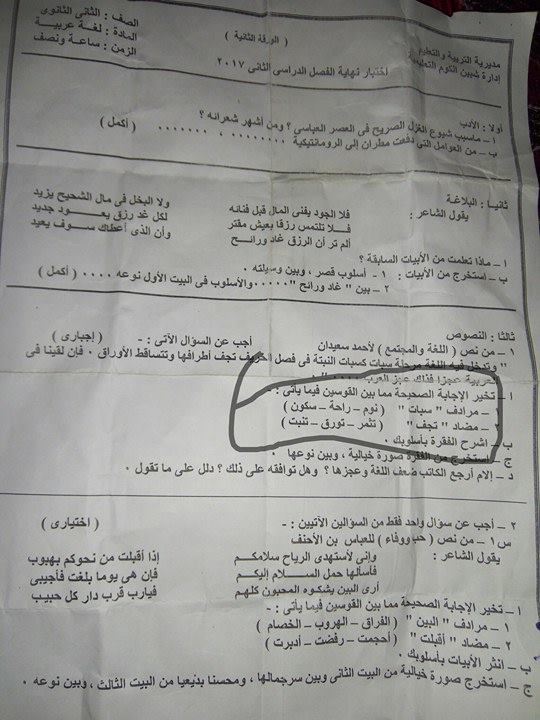 الصف : الثانى الثانوى
المادة : لغة عربية
الزمن : ساعة ونصف
( الورقة الثانية )
مديرية التربية والتعليم
إدارة شبين الكوم التعليمية
اختبار نهاية الفصل الدراسى الثانى ٢٠١٧
أولا : الأدب
ا – ماسبب شيوع الغزل الصريح فى العصر العباسى ؟ ومن أشهر شعرائه ؟
ب – من العوامل التى دفعت مطران إلى الرومانتيكية ....... ، ....... ( أكمل )
ثانيا : البلاغة
يقول الشاعر :
فلا الجود يفنى المال قبل فنائه ولا البخل فى مال الشحيح يزيد
فلا تلتمس رزقا بعيش مقتر لكل غد رزق يعود جديد
ألم تر أن الرزق غاد ورائح وأن الذى أعطاك سوف يعيد
ا – ماذا تعلمت من الأبيات السابقة ؟
ب – استخرج من الأبيات : ١ - أسلوب قصر ، وبين وسيلته .
٢ – بين " غاد ورائح " ..... والأسلوب فى البيت الأول نوعه .... ( أكمل )
ثالثا : النصوص أجب عن السؤال الآتى : - ( إجبارى )
١ – من نص ( اللغة والمجتمع ) لأحمد سعيدان
" وتدخل فيه اللغة مرحلة سبات كسبات النبتة فى فصل الخريف تجف أطرافها وتتساقط الأوراق . فإن لقينا فى
العربية عجزا فذلك عجز العرب ..... " .
ا – تخير الإجابة الصحيحة مما بين القوسين فيما يأتى : -
١ – مرادف " سبات " ( نوم – راحة – سكون )
٢ – مضاد " تجف " ( تثمر – تورق – تنبت )
ب – اشرح الفقرة بأسلوبك .
ج – استخرج من الفقرة صورة خيالية ، وبين نوعها .
د – إلام أرجع الكاتب ضعف اللغة وعجزها ؟ وهل توافقه على ذلك ؟ دلل على ما تقول .
٢ – أجب عن سؤال واحد فقط من السؤالين الآتيين : - ( اختيارى )
س ١ – من نص ( حب ووفاء ) للعباس بن الأحنف
يقول الشاعر :
وإنى لأستهدى الرياح سلامكم إذا أقبلت من نحوكم بهبوب
فأسألها حمل السلام إليكم فإن هى يوما بلغت فأجيبى
أرى البين يشكوه المحبون كلهم فيارب قرب دار كل حبيب
ا – تخير الإجابة الصحيحة مما بين القوسين فيما يأتى : -
١ – مرادف " البين " ( الفراق – الهروب – الخصام )
٢ – مضاد " أقبلت " ( أحجمت – رفضت – أدبرت )
ب – انثر الأبيات بأسلوبك .
ج – استخرج صورة خيالية من البيت الثانى وبين سرجمالها ، ومحسنا بديعيا من البيت الثالث ، وبين نوعه .